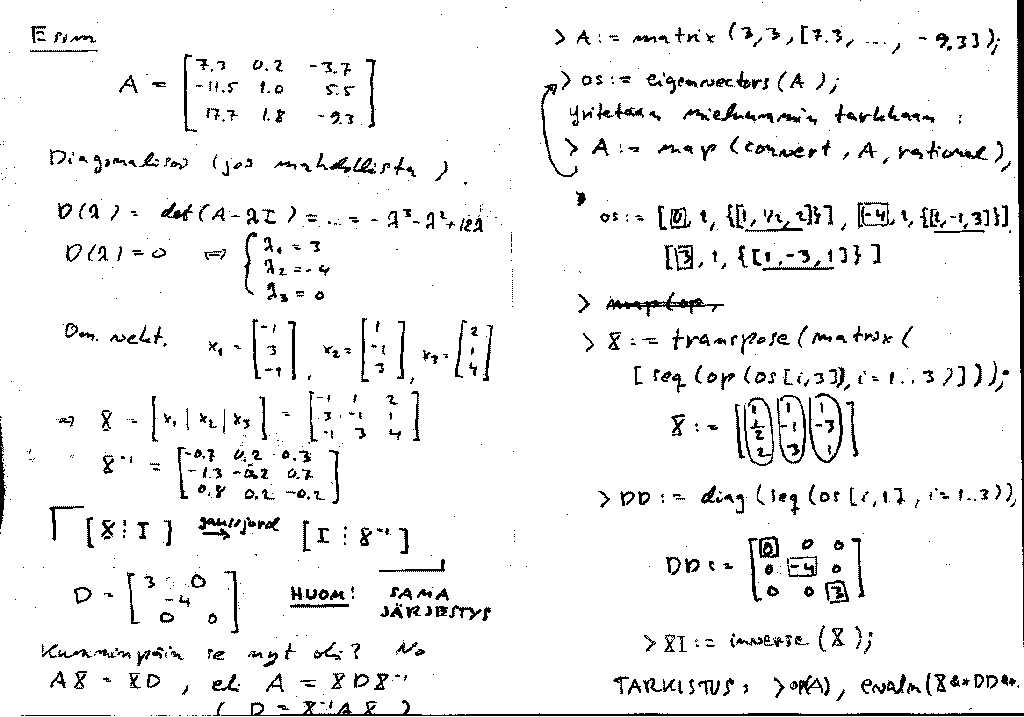 Esim
A = [ 7.3 0.2 -3.7
-11.5 1.0 5.5
17.7 1.8 -9.3 ]
Diagonalisoi (jos mahdollista).
D(λ) = det(A-λI) = ... = -λ³-λ²+12λ
D(λ)=0 ⇔ { λ₁ = 3
λ₂ = -4
λ₃ = 0
Om. vekt. x₁ = [ -1 3 -1 ], x₂ = [ 1 -1 3 ], x₃ = [ 2 1 4 ]
⇒ X = [ x₁ | x₂ | x₃ ] = [ -1 1 2
3 -1 1
-1 3 4 ]
X⁻¹ = [ -0.7 0.2 0.3
-1.3 -0.2 0.7
0.8 0.2 -0.2 ]
[ X ⋮ I ] gaussjord → [ I ⋮ X⁻¹ ]
D = [ 3 0
-4
0 0 ]
HUOM! SAMA
JÄRJESTYS
Kumminpäin se nyt oli? No
AX = XD, eli A = XDX⁻¹
( D = X⁻¹AX )
> A := matrix (3,3,[7.3, ..., -9.3]);
> os := eigenvectors (A);
yritetään mieluummin tarkkaan :
> A := map (convert, A, rational),
os := [0, 1, {[1, 1/2, 2]}], [-4, 1, {[1,-1,3]}]
[3, 1, {[1,-3,1]}]
> map(op,
> X := transpose (matrix (
[seq (op (os[i,3]), i=1..3)]));
X := [ 1 1 1
1/2 -1 -3
2 -3 1 ]
> DD := diag (seq (os[i,1], i=1..3)),
DD := [ 0 0 0
0 -4 0
0 0 3 ]
> XI := inverse (X);
TARKISTUS: > op(A), evalm(X&*DD&*.